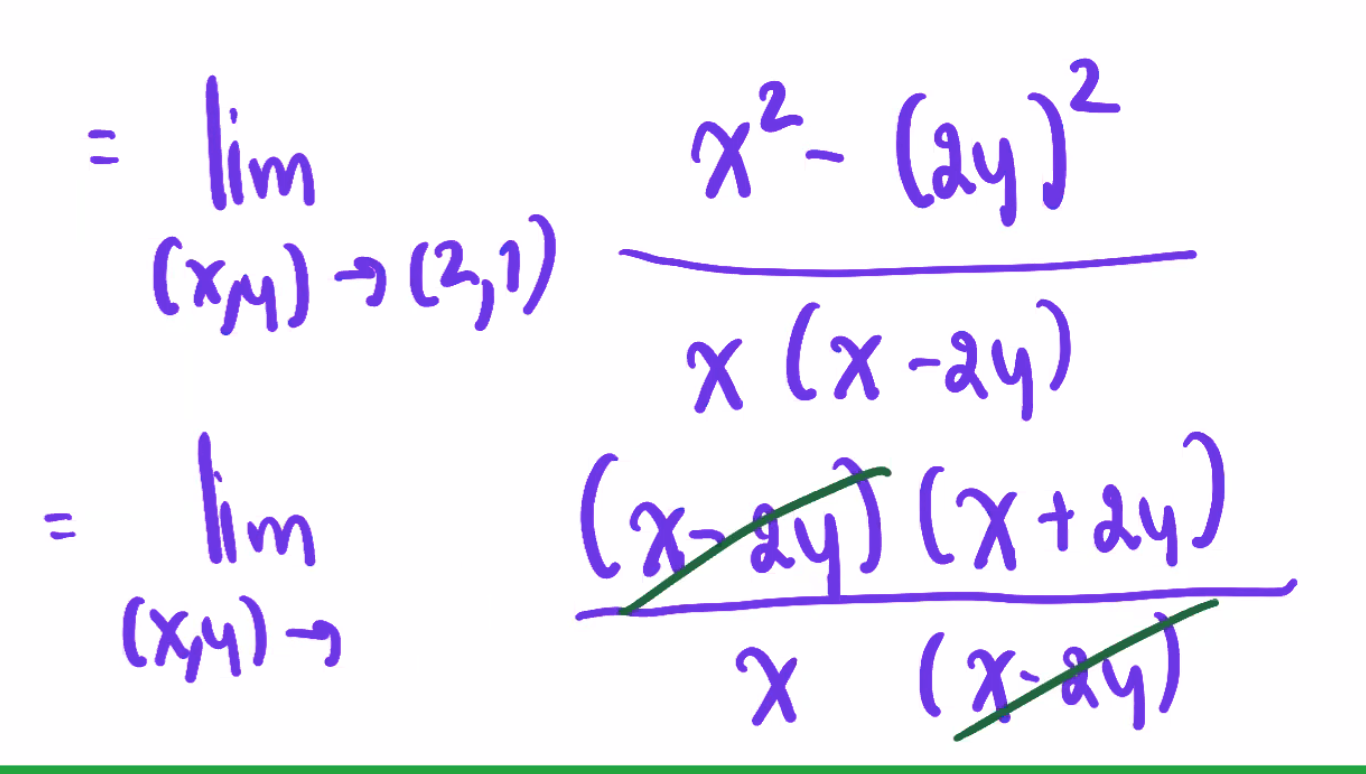 = lim (x,y) → (2,1) x² - (2y)² / x (x - 2y)
= lim (x,y) → (x - 2y) (x + 2y) / x (x - 2y)